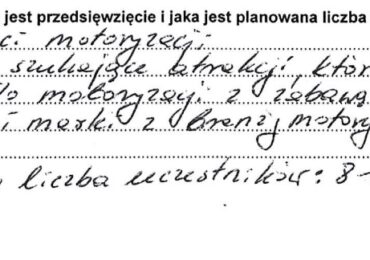 jest przedsięwzięcie i jaka jest planowana liczba
ci motoryzacji;
szukające atrakcji, któr
do motoryzacji z zabawą
i marki z branży motory
liczba uczestników: 8-